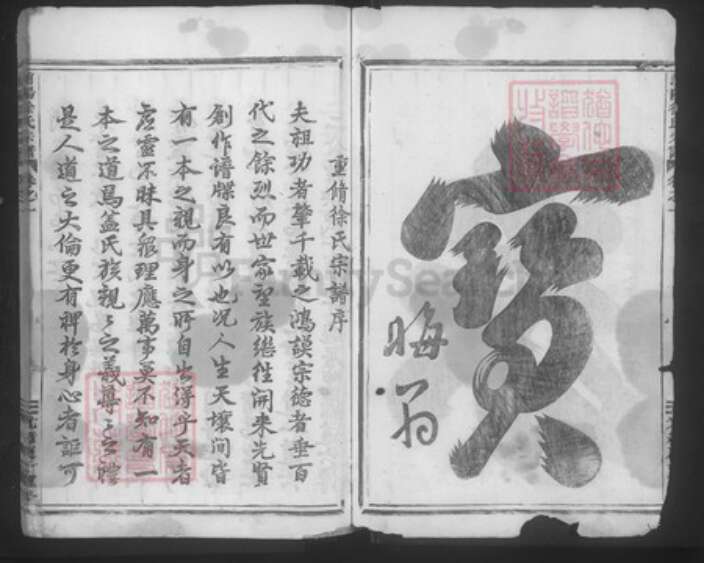 寶
晦翁
重脩徐氏宗譜序
夫祖功者肇千載之鴻謨宗德者垂百
代之餘烈而世家望族繼往開来先賢
創作譜牒良有以也况人生天壤间皆
有一本之親而身之所自出得乎天者
虛靈不昧具衆理應萬事莫不知有一
本之道焉蓋氏族親〻之義尊〻之禮
是人道之大倫更有裨於身心者詎可
FamilySearch